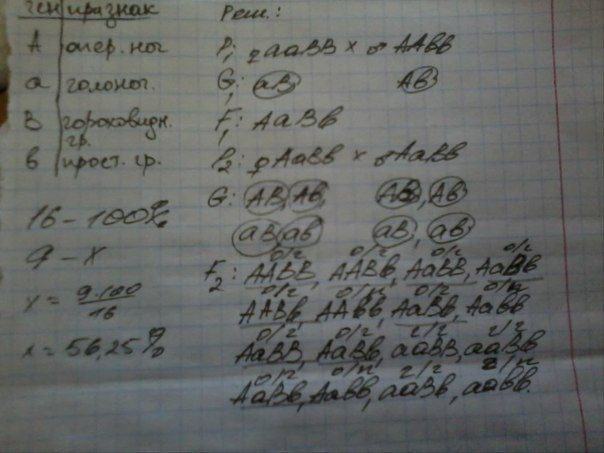 ген признак
А опер. ног
а голоног.
В гороховидн.
гр.
в прост. гр.
16 – 100%
9 – х
х = 9·100
16
х = 56,25%
Реш.:
P₁: ♀ ааВВ × ♂ ААвв
G: аВ Ав
F₁: АаВв
P₂: ♀ АаВв × ♂ АаВв
G: АВ, Ав, АВ, Ав
аВ, ав аВ, ав
о/г о/г о/г о/г
F₂: ААВВ, ААВв, АаВВ, АаВв
о/г о/п о/г о/п
ААВв, ААвв, АаВв, Аавв
о/г о/г г/г г/г
АаВВ, АаВв, ааВВ, ааВв
о/г о/п г/г г/п
АаВв, Аавв, ааВв, аавв.